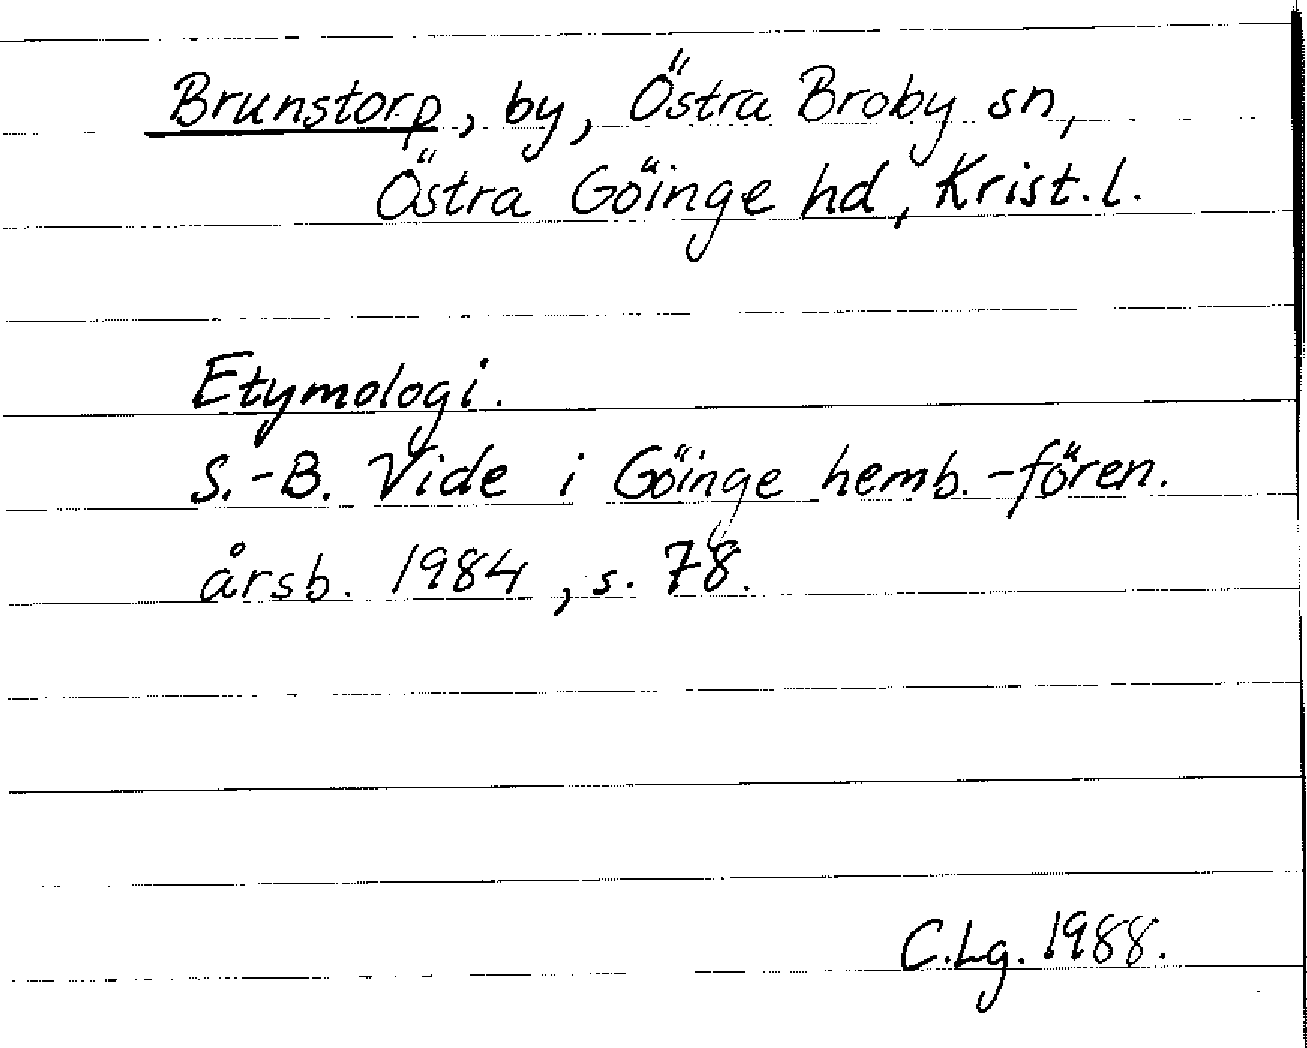 Brunstorp, by, Östra Broby sn,
Östra Göinge hd, Krist. l.
Etymologi.
S.-B. Vide i Göinge hemb.-fören.
årsb. 1984, s. 78.
C.Lg. 1988.